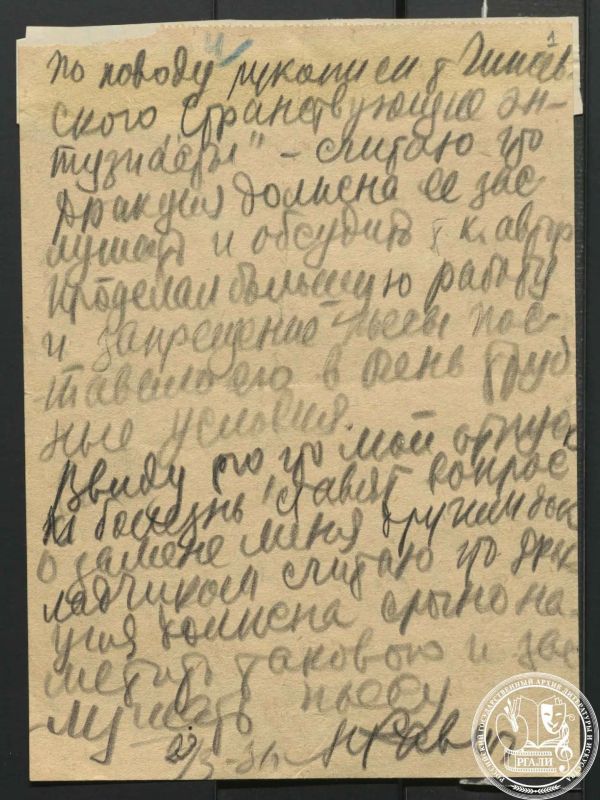 1
по поводу рукописи
ского "Странствующие эн-
тузиасты" – считаю что
фракция должна ее зас
лушать и обсудить т к автор
проделал большую работу
и запрещение пьесы пос-
тавило его в очень труд
ные условия.
Ввиду того что мой отпуск
и болезнь ставят вопрос
о замене меня другим док
ладчиком считаю что фрак
ция должна срочно на-
метить такового и зас
лушать пьесу
РОССИЙСКИЙ ГОСУДАРСТВЕННЫЙ АРХИВ ЛИТЕРАТУРЫ И ИСКУССТВА
РГАЛИ